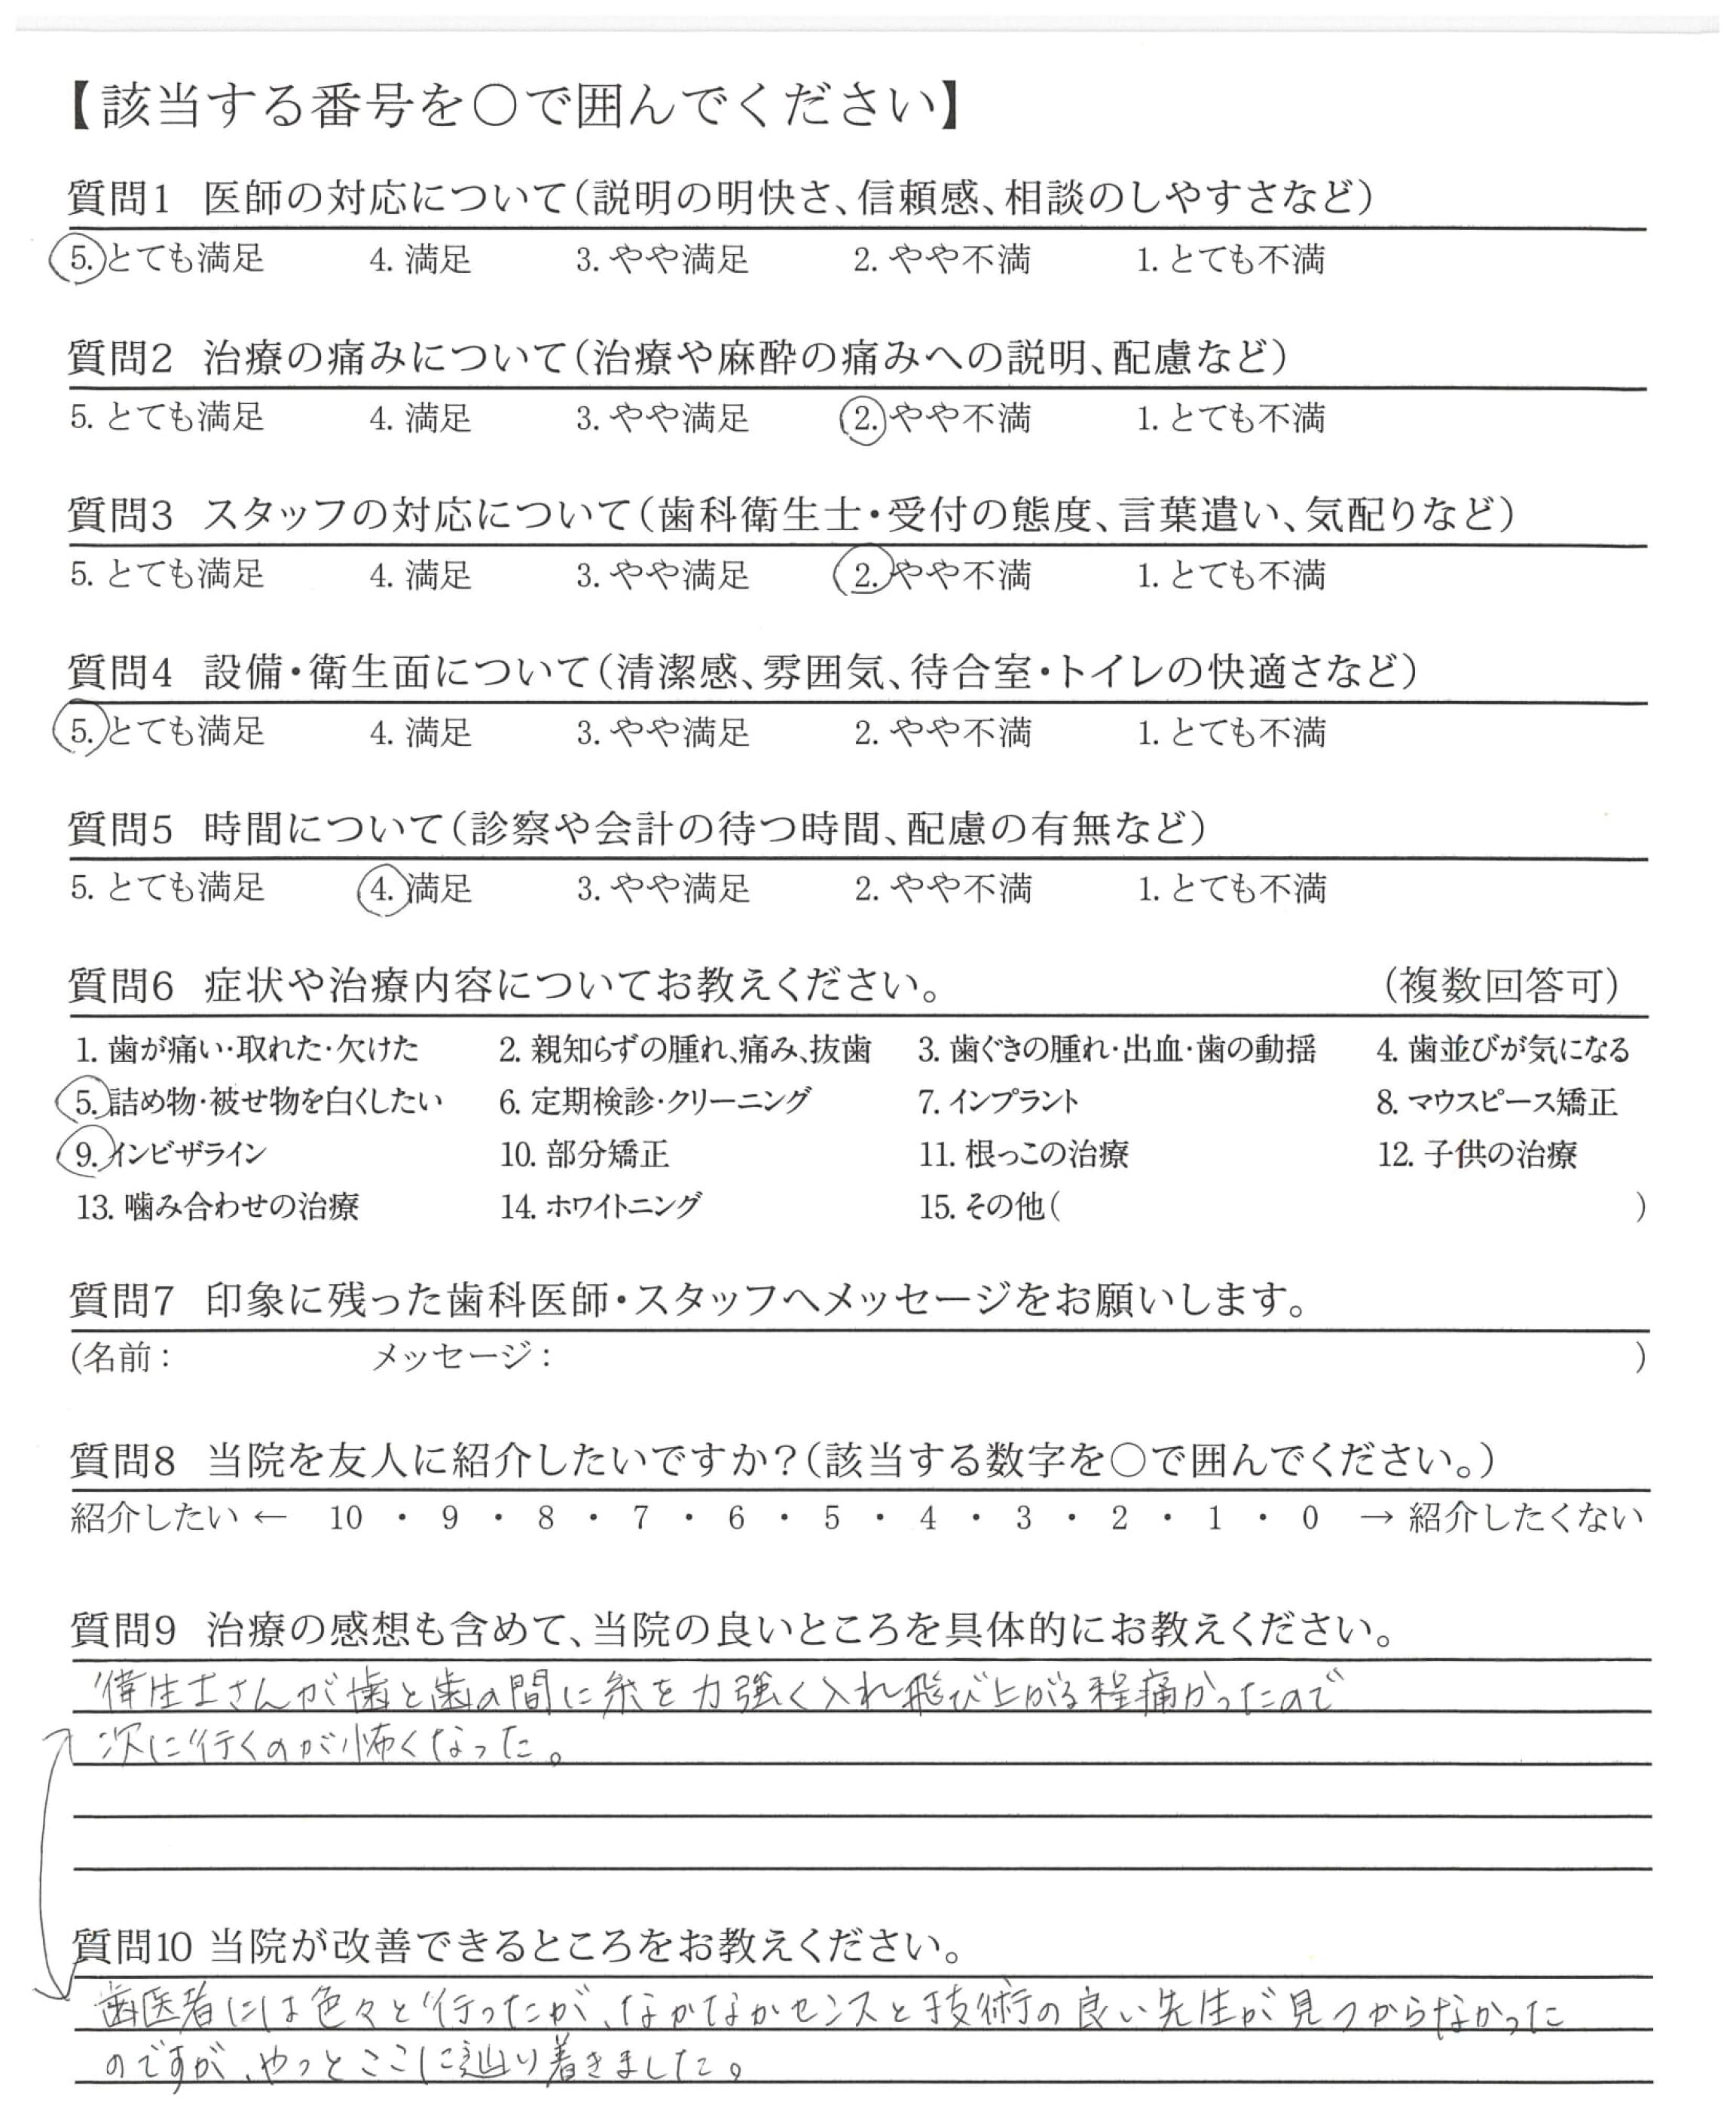 【該当する番号を○で囲んでください】
質問1 医師の対応について(説明の明快さ、信頼感、相談のしやすさなど)
5. とても満足 4. 満足 3. やや満足 2. やや不満 1. とても不満
質問2 治療の痛みについて(治療や麻酔の痛みへの説明、配慮など)
5. とても満足 4. 満足 3. やや満足 2. やや不満 1. とても不満
質問3 スタッフの対応について(歯科衛生士・受付の態度、言葉遣い、気配りなど)
5. とても満足 4. 満足 3. やや満足 2. やや不満 1. とても不満
質問4 設備・衛生面について(清潔感、雰囲気、待合室・トイレの快適さなど)
5. とても満足 4. 満足 3. やや満足 2. やや不満 1. とても不満
質問5 時間について(診察や会計の待つ時間、配慮の有無など)
5. とても満足 4. 満足 3. やや満足 2. やや不満 1. とても不満
質問6 症状や治療内容についてお教えください。 (複数回答可)
1. 歯が痛い・取れた・欠けた 2. 親知らずの腫れ、痛み、抜歯 3. 歯ぐきの腫れ・出血・歯の動揺 4. 歯並びが気になる
5. 詰め物・被せ物を白くしたい 6. 定期検診・クリーニング 7. インプラント 8. マウスピース矯正
9. インビザライン 10. 部分矯正 11. 根っこの治療 12. 子供の治療
13. 噛み合わせの治療 14. ホワイトニング 15. その他( )
質問7 印象に残った歯科医師・スタッフへメッセージをお願いします。
(名前: メッセージ: )
質問8 当院を友人に紹介したいですか?(該当する数字を○で囲んでください。)
紹介したい ← 10 ・ 9 ・ 8 ・ 7 ・ 6 ・ 5 ・ 4 ・ 3 ・ 2 ・ 1 ・ 0 → 紹介したくない
質問9 治療の感想も含めて、当院の良いところを具体的にお教えください。
衛生士さんが歯と歯の間に糸を力強く入れ飛び上がる程痛かったので
次に行くのが怖くなった。
質問10 当院が改善できるところをお教えください。
歯医者には色々と行ったが、なかなかセンスと技術の良い先生が見つからなかった
のですが、やっとここに辿り着きました。